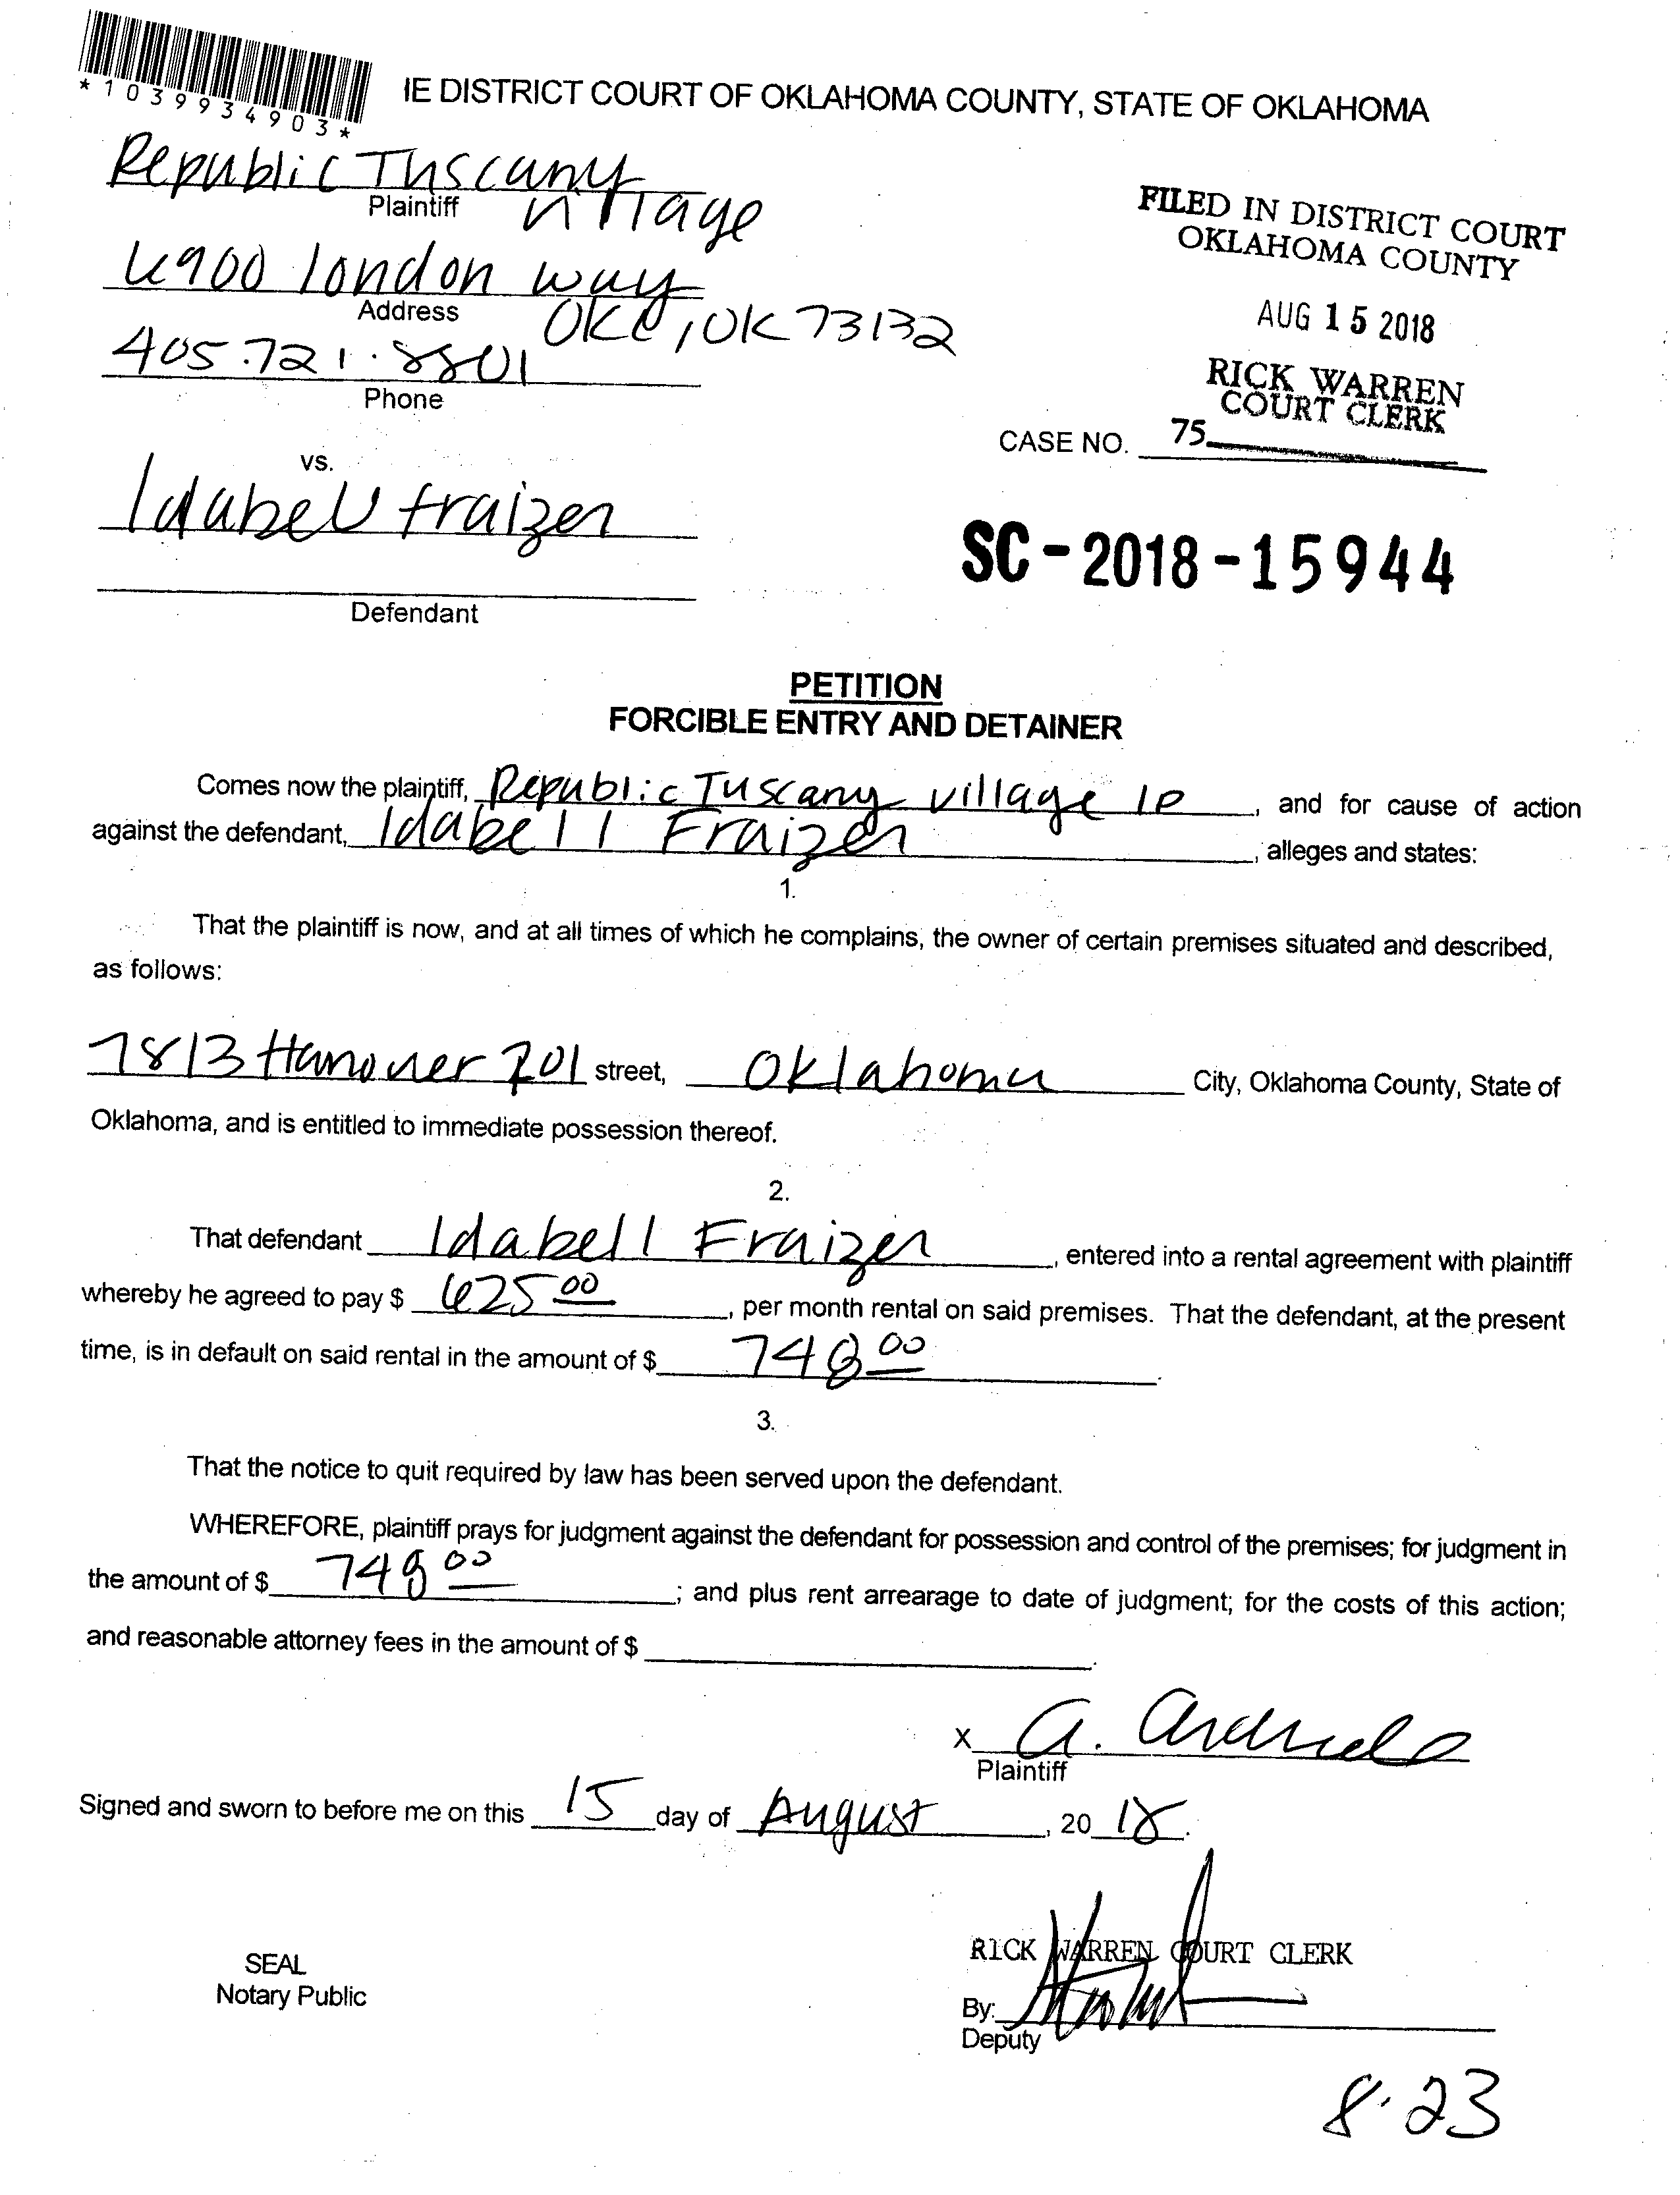 *1039934903*
IE DISTRICT COURT OF OKLAHOMA COUNTY, STATE OF OKLAHOMA
Republic Tuscany
Plaintiff village
6900 london way
Address OKC, OK 73132
405.721.8801
Phone
FILED IN DISTRICT COURT
OKLAHOMA COUNTY
AUG 15 2018
RICK WARREN
COURT CLERK
CASE NO. 75
vs.
Idabell fraizer
Defendant
SC-2018-15944
PETITION
FORCIBLE ENTRY AND DETAINER
Comes now the plaintiff, Republic Tuscany village lp, and for cause of action
against the defendant, Idabell Fraizer, alleges and states:
1.
That the plaintiff is now, and at all times of which he complains, the owner of certain premises situated and described,
as follows:
7813 Hanover 201 street, Oklahoma City, Oklahoma County, State of
Oklahoma, and is entitled to immediate possession thereof.
2.
That defendant Idabell Fraizer, entered into a rental agreement with plaintiff
whereby he agreed to pay $ 625 00, per month rental on said premises. That the defendant, at the present
time, is in default on said rental in the amount of $ 748 00.
3.
That the notice to quit required by law has been served upon the defendant.
WHEREFORE, plaintiff prays for judgment against the defendant for possession and control of the premises; for judgment in
the amount of $ 748 00; and plus rent arrearage to date of judgment; for the costs of this action;
and reasonable attorney fees in the amount of $ .
X A.
Plaintiff
Signed and sworn to before me on this 15 day of August, 20 18.
SEAL
Notary Public
RICK WARREN COURT CLERK
By:
Deputy
8.23